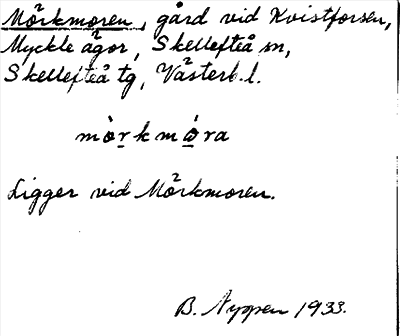 Mörkmoren, gård vid Kvistforsen,
Myckle ägor, Skellefteå sn,
Skellefteå tg, Västerb. l.
mörkmora
Ligger vid Mörkmoren.
B. Nyman 1933.